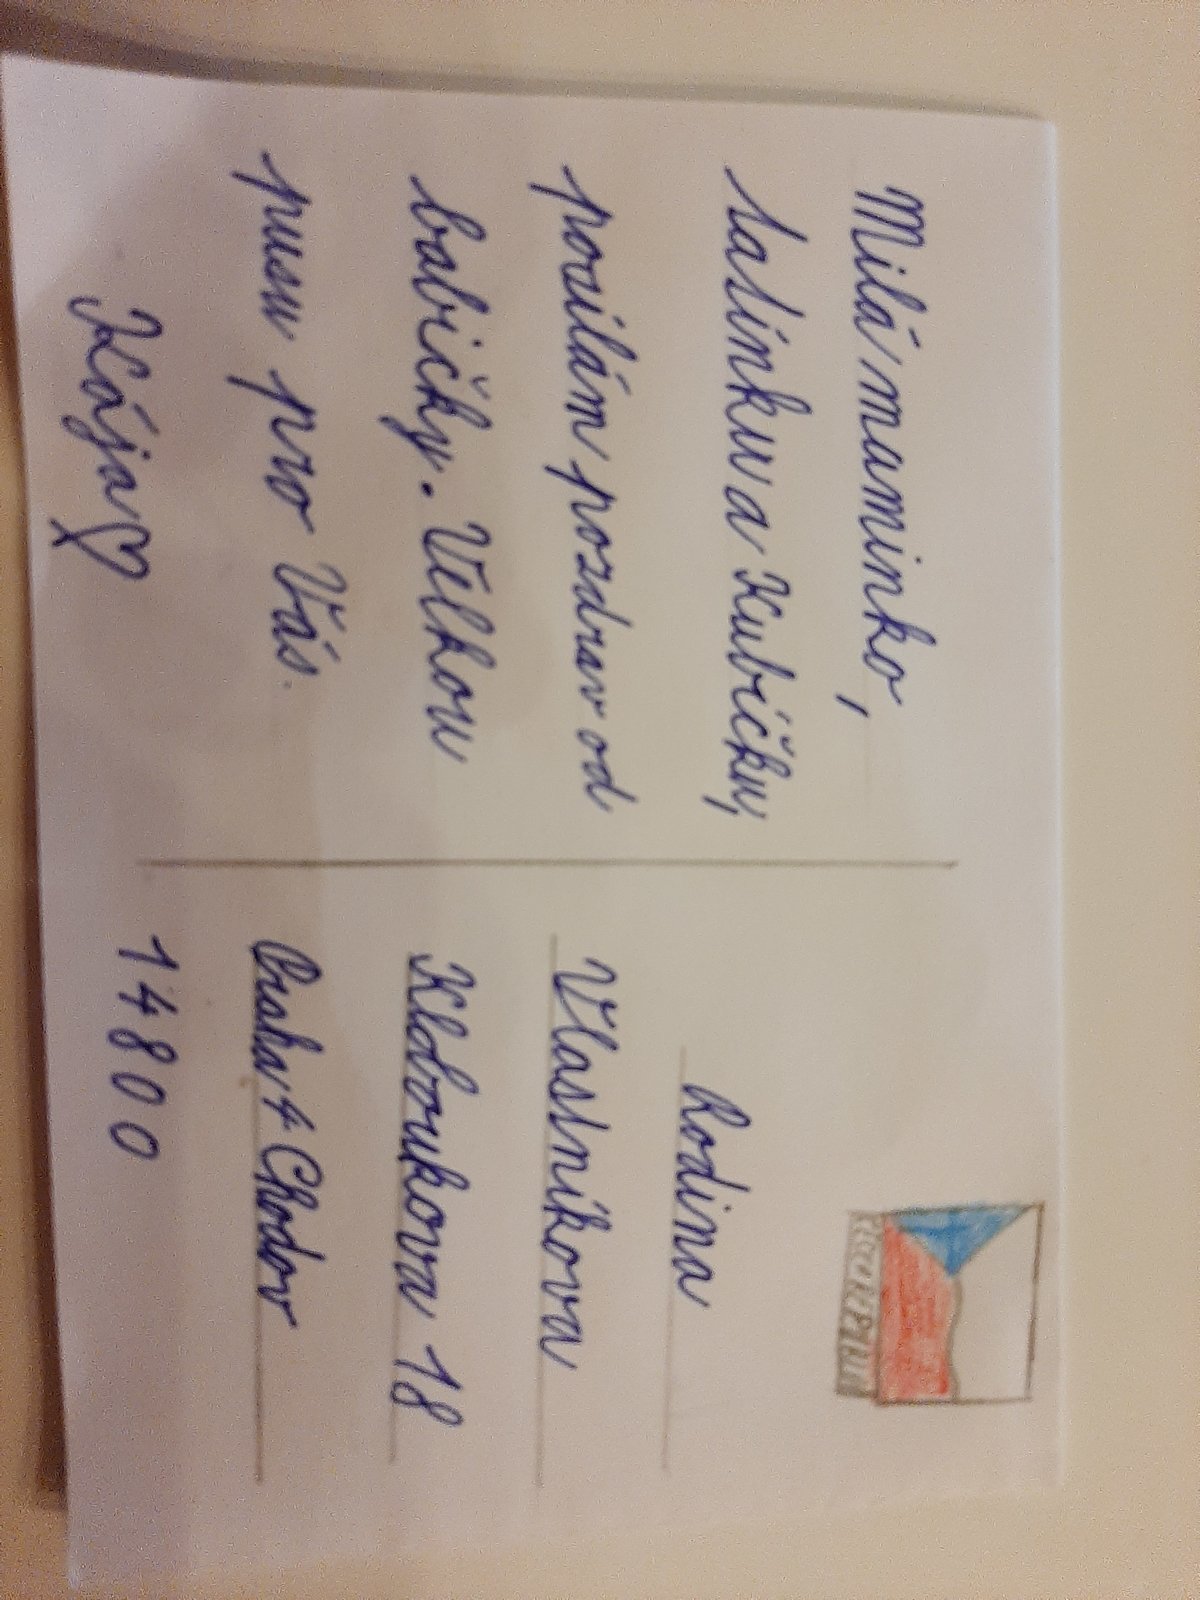 Milá maminko,
tatínku a Kubíčku,
posílám pozdrav od
babičky. Velkou
pusu pro Vás.
Kája
Rodina
Vlastníkova
Kldroukova 18
Praha 4 Chodov
14800